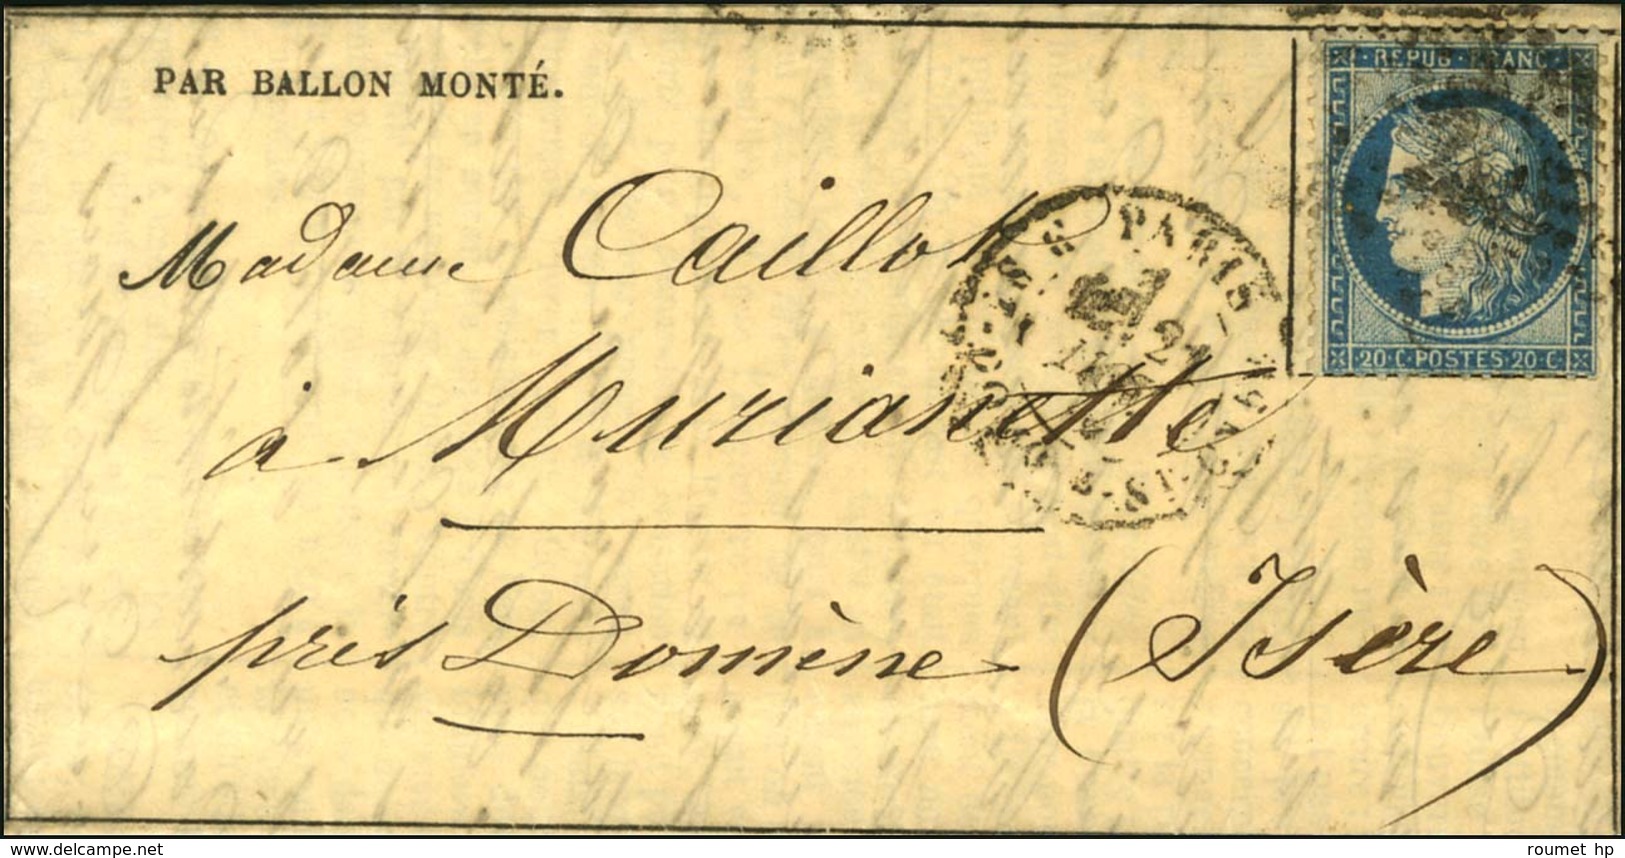 REPUB · FRANC
PAR BALLON MONTÉ.
PARIS
21
Madame Caillot
20 C · POSTES · 20 C
à Murianette
près Domène (Isère)
www.delcampe.net
roumet hp